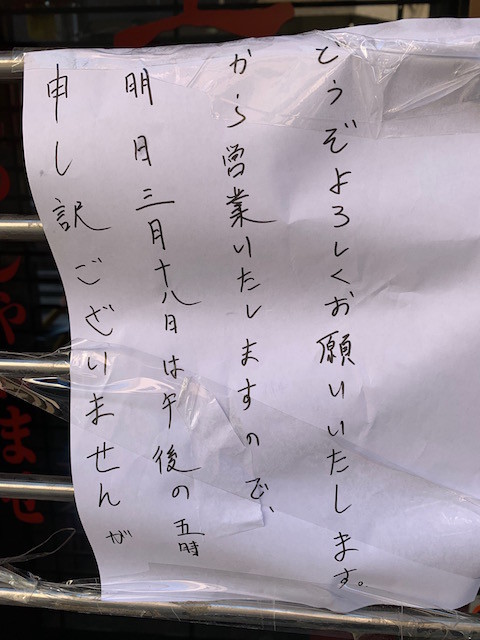 申し訳ございませんが
明日三月十八日は午後の五時
から営業いたしますので、
どうぞよろしくお願いいたします。